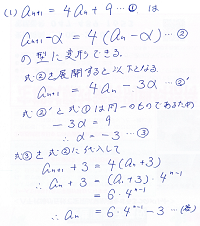 (1) an+1 = 4an + 9 … ① は
an+1 - α = 4 (an - α) … ②
の型に変形できる。
式②を展開すると以下となる。
an+1 = 4an - 3α … ②'
式②'と式①は同一のものであるため
-3α = 9
∴ α = -3 … ③
式③を式②に代入して
an+1 + 3 = 4(an + 3)
∴ an + 3 = (a1 + 3)・4^n-1
= 6・4^n-1
∴ an = 6・4^n-1 - 3 … (答)